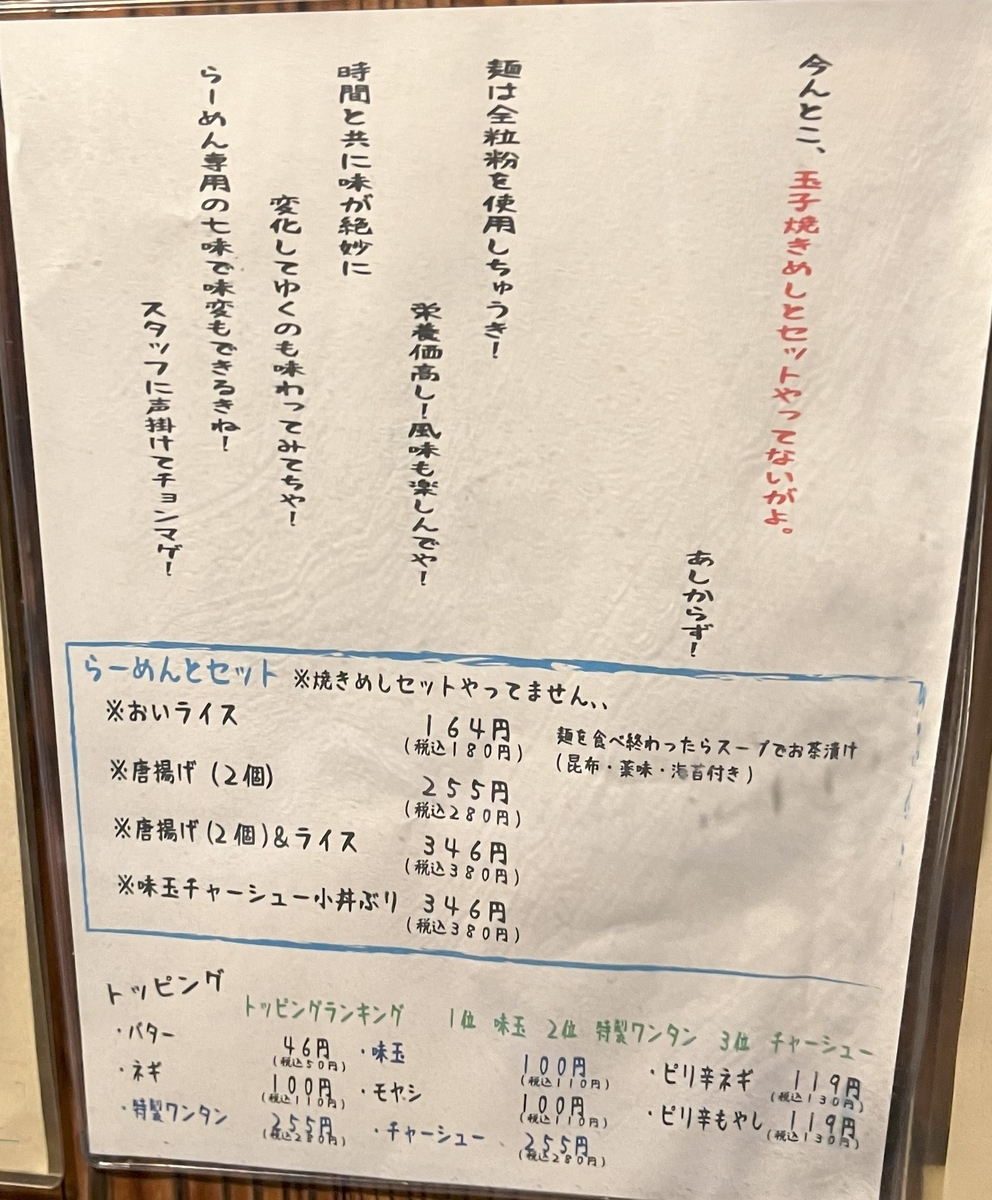 今んとこ、玉子焼きめしとセットやってないがよ。
あしからず！
麺は全粒粉を使用しちゅうき！
栄養価高し！風味も楽しんでや！
時間と共に味が絶妙に
変化してゆくのも味わってみてちや！
らーめん専用の七味で味変もできるきね！
スタッフに声掛けてチョンマゲ！
らーめんとセット ※焼きめしセットやってません、、
※おいライス 164円
(税込180円)
麺を食べ終わったらスープでお茶漬け
(昆布・薬味・海苔付き)
※唐揚げ(2個) 255円
(税込280円)
※唐揚げ(2個)&ライス 346円
(税込380円)
※味玉チャーシュー小丼ぶり 346円
(税込380円)
トッピング
トッピングランキング 1位 味玉 2位 特製ワンタン 3位 チャーシュー
・バター 46円
(税込50円)
・味玉 100円
(税込110円)
・ピリ辛ネギ 119円
(税込130円)
・ネギ 100円
(税込110円)
・モヤシ 100円
(税込110円)
・ピリ辛もやし 119円
(税込130円)
・特製ワンタン 255円
(税込280円)
・チャーシュー 255円
(税込280円)